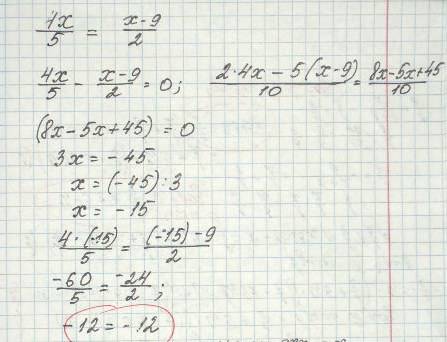 4x/5 = x-9/2
4x/5 - x-9/2 = 0; 2·4x-5(x-9)/10 = 8x-5x+45/10
(8x-5x+45) = 0
3x = -45
x = (-45):3
x = -15
4·(-15)/5 = (-15)-9/2
-60/5 = -24/2;
-12 = -12